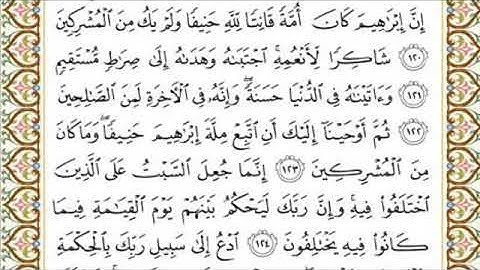 إِنَّ إِبْرَٰهِيمَ كَانَ أُمَّةً قَانِتًا لِّلَّهِ حَنِيفًا وَلَمْ يَكُ مِنَ ٱلْمُشْرِكِينَ
١٢٠ شَاكِرًا لِّأَنْعُمِهِ ٱجْتَبَىٰهُ وَهَدَىٰهُ إِلَىٰ صِرَٰطٍ مُّسْتَقِيمٍ
١٢١ وَءَاتَيْنَٰهُ فِى ٱلدُّنْيَا حَسَنَةً وَإِنَّهُۥ فِى ٱلْءَاخِرَةِ لَمِنَ ٱلصَّٰلِحِينَ
١٢٢ ثُمَّ أَوْحَيْنَآ إِلَيْكَ أَنِ ٱتَّبِعْ مِلَّةَ إِبْرَٰهِيمَ حَنِيفًا وَمَا كَانَ
مِنَ ٱلْمُشْرِكِينَ ١٢٣ إِنَّمَا جُعِلَ ٱلسَّبْتُ عَلَى ٱلَّذِينَ
ٱخْتَلَفُوا۟ فِيهِ وَإِنَّ رَبَّكَ لَيَحْكُمُ بَيْنَهُمْ يَوْمَ ٱلْقِيَٰمَةِ فِيمَا
كَانُوا۟ فِيهِ يَخْتَلِفُونَ ١٢٤ ٱدْعُ إِلَىٰ سَبِيلِ رَبِّكَ بِٱلْحِكْمَةِ